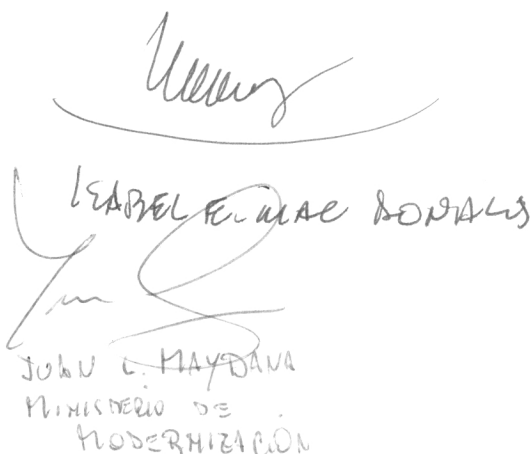 ISABEL E. MAC DONALD
JUAN C. MAYDANA
MINISTERIO DE
MODERNIZACIÓN